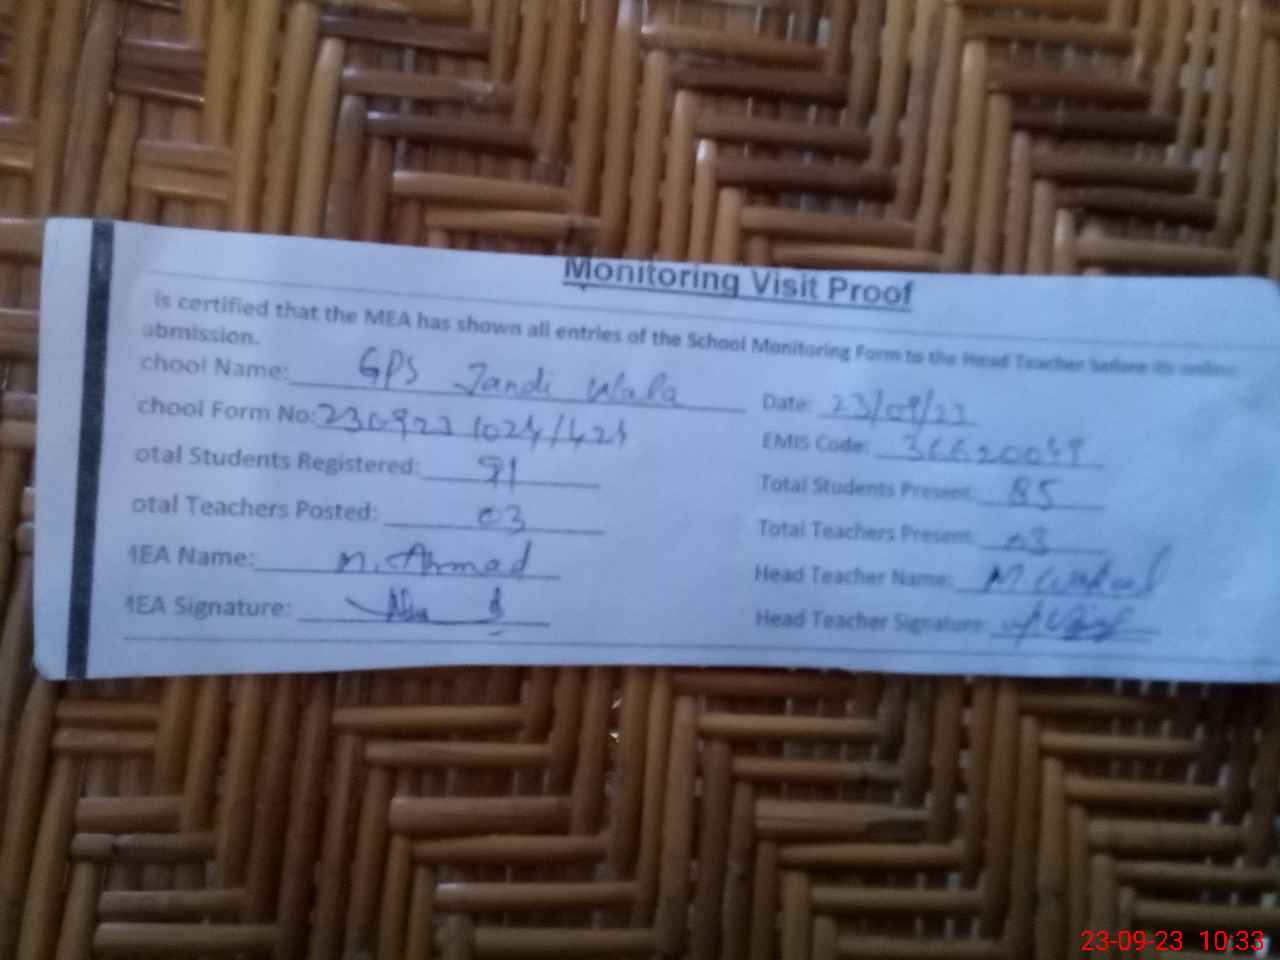 Monitoring Visit Proof
is certified that the MEA has shown all entries of the School Monitoring Form to the Head Teacher before its online
ubmission.
chool Name: GPS Jandi Wala
Date: 23/09/23
chool Form No:
EMIS Code:
otal Students Registered: 91
Total Students Present: 85
otal Teachers Posted: 03
Total Teachers Present: 03
MEA Name: M. Ahmad
Head Teacher Name: M
MEA Signature:
Head Teacher Signature:
23-09-23 10:33